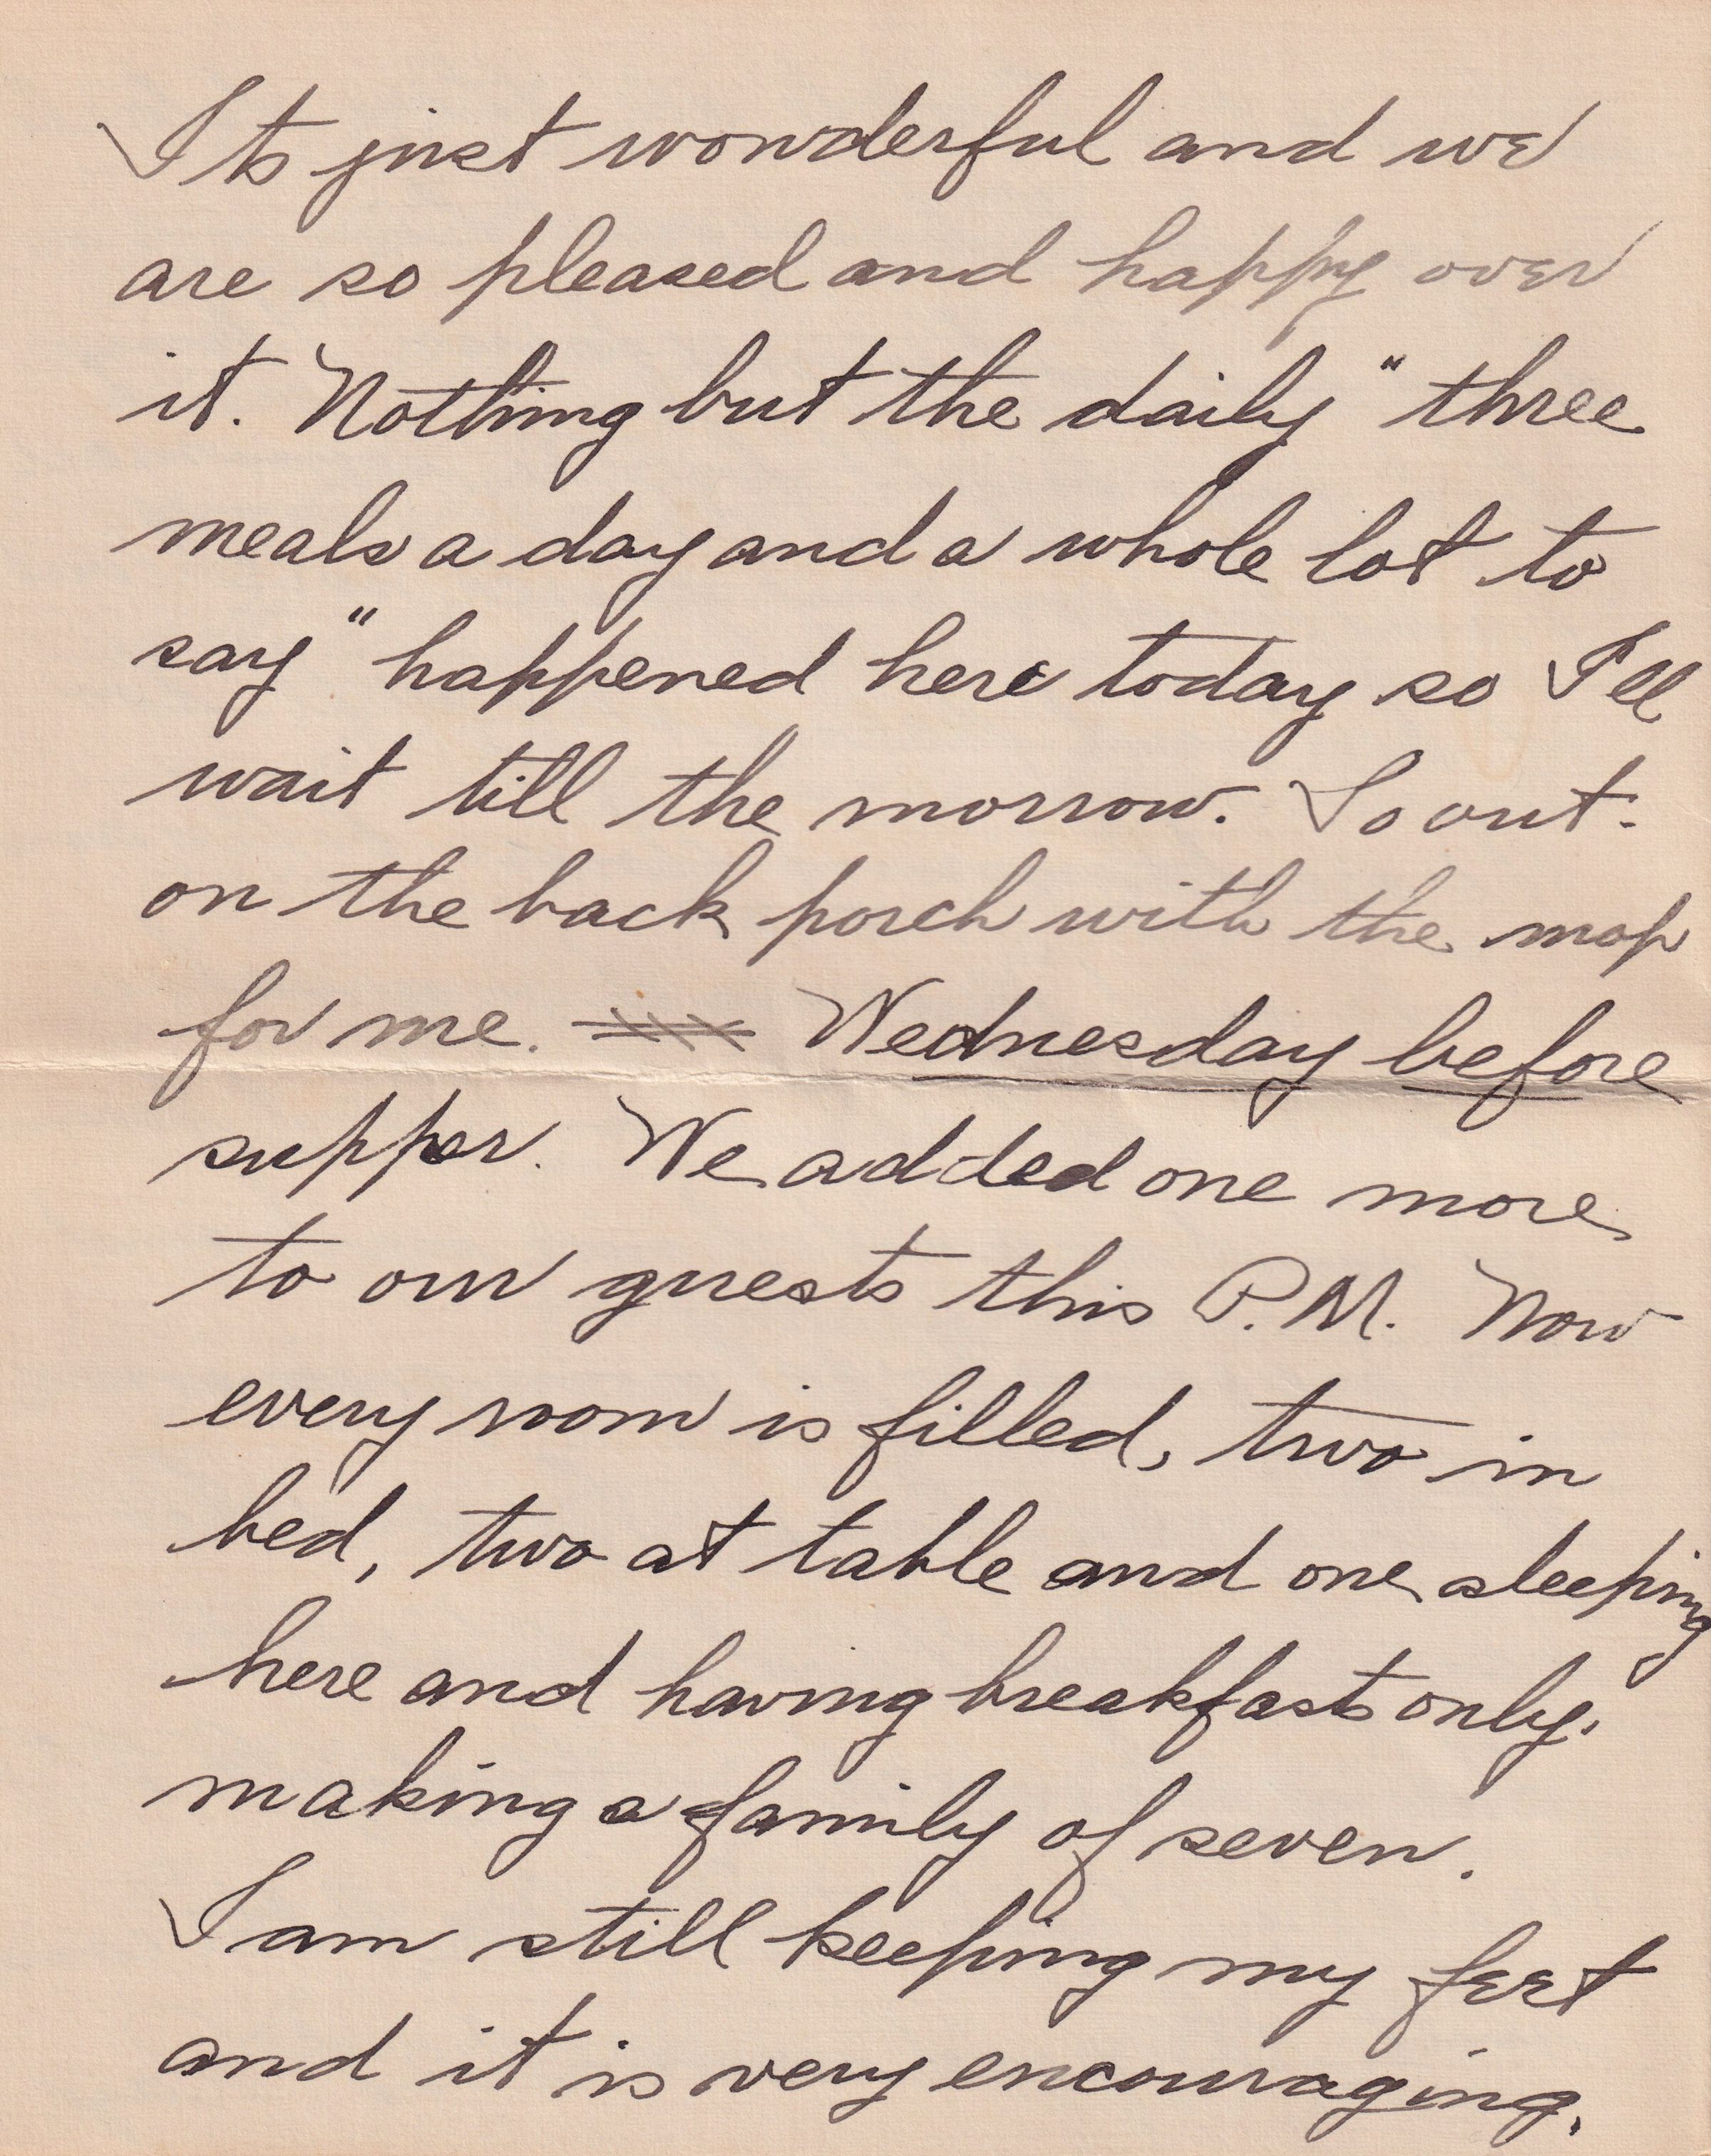 Its just wonderful and we
are so pleased and happy over
it. Nothing but the daily "three
meals a day and a whole lot to
say" happened here today so I'll
wait till the morrow. So out
on the back porch with the mop
for me. Wednesday before
supper. We added one more
to our guests this P.M. Now
every room is filled, two in
bed, two at table and one sleeping
here and having breakfasts only,
making a family of seven.
I am still keeping my feet
and it is very encouraging.